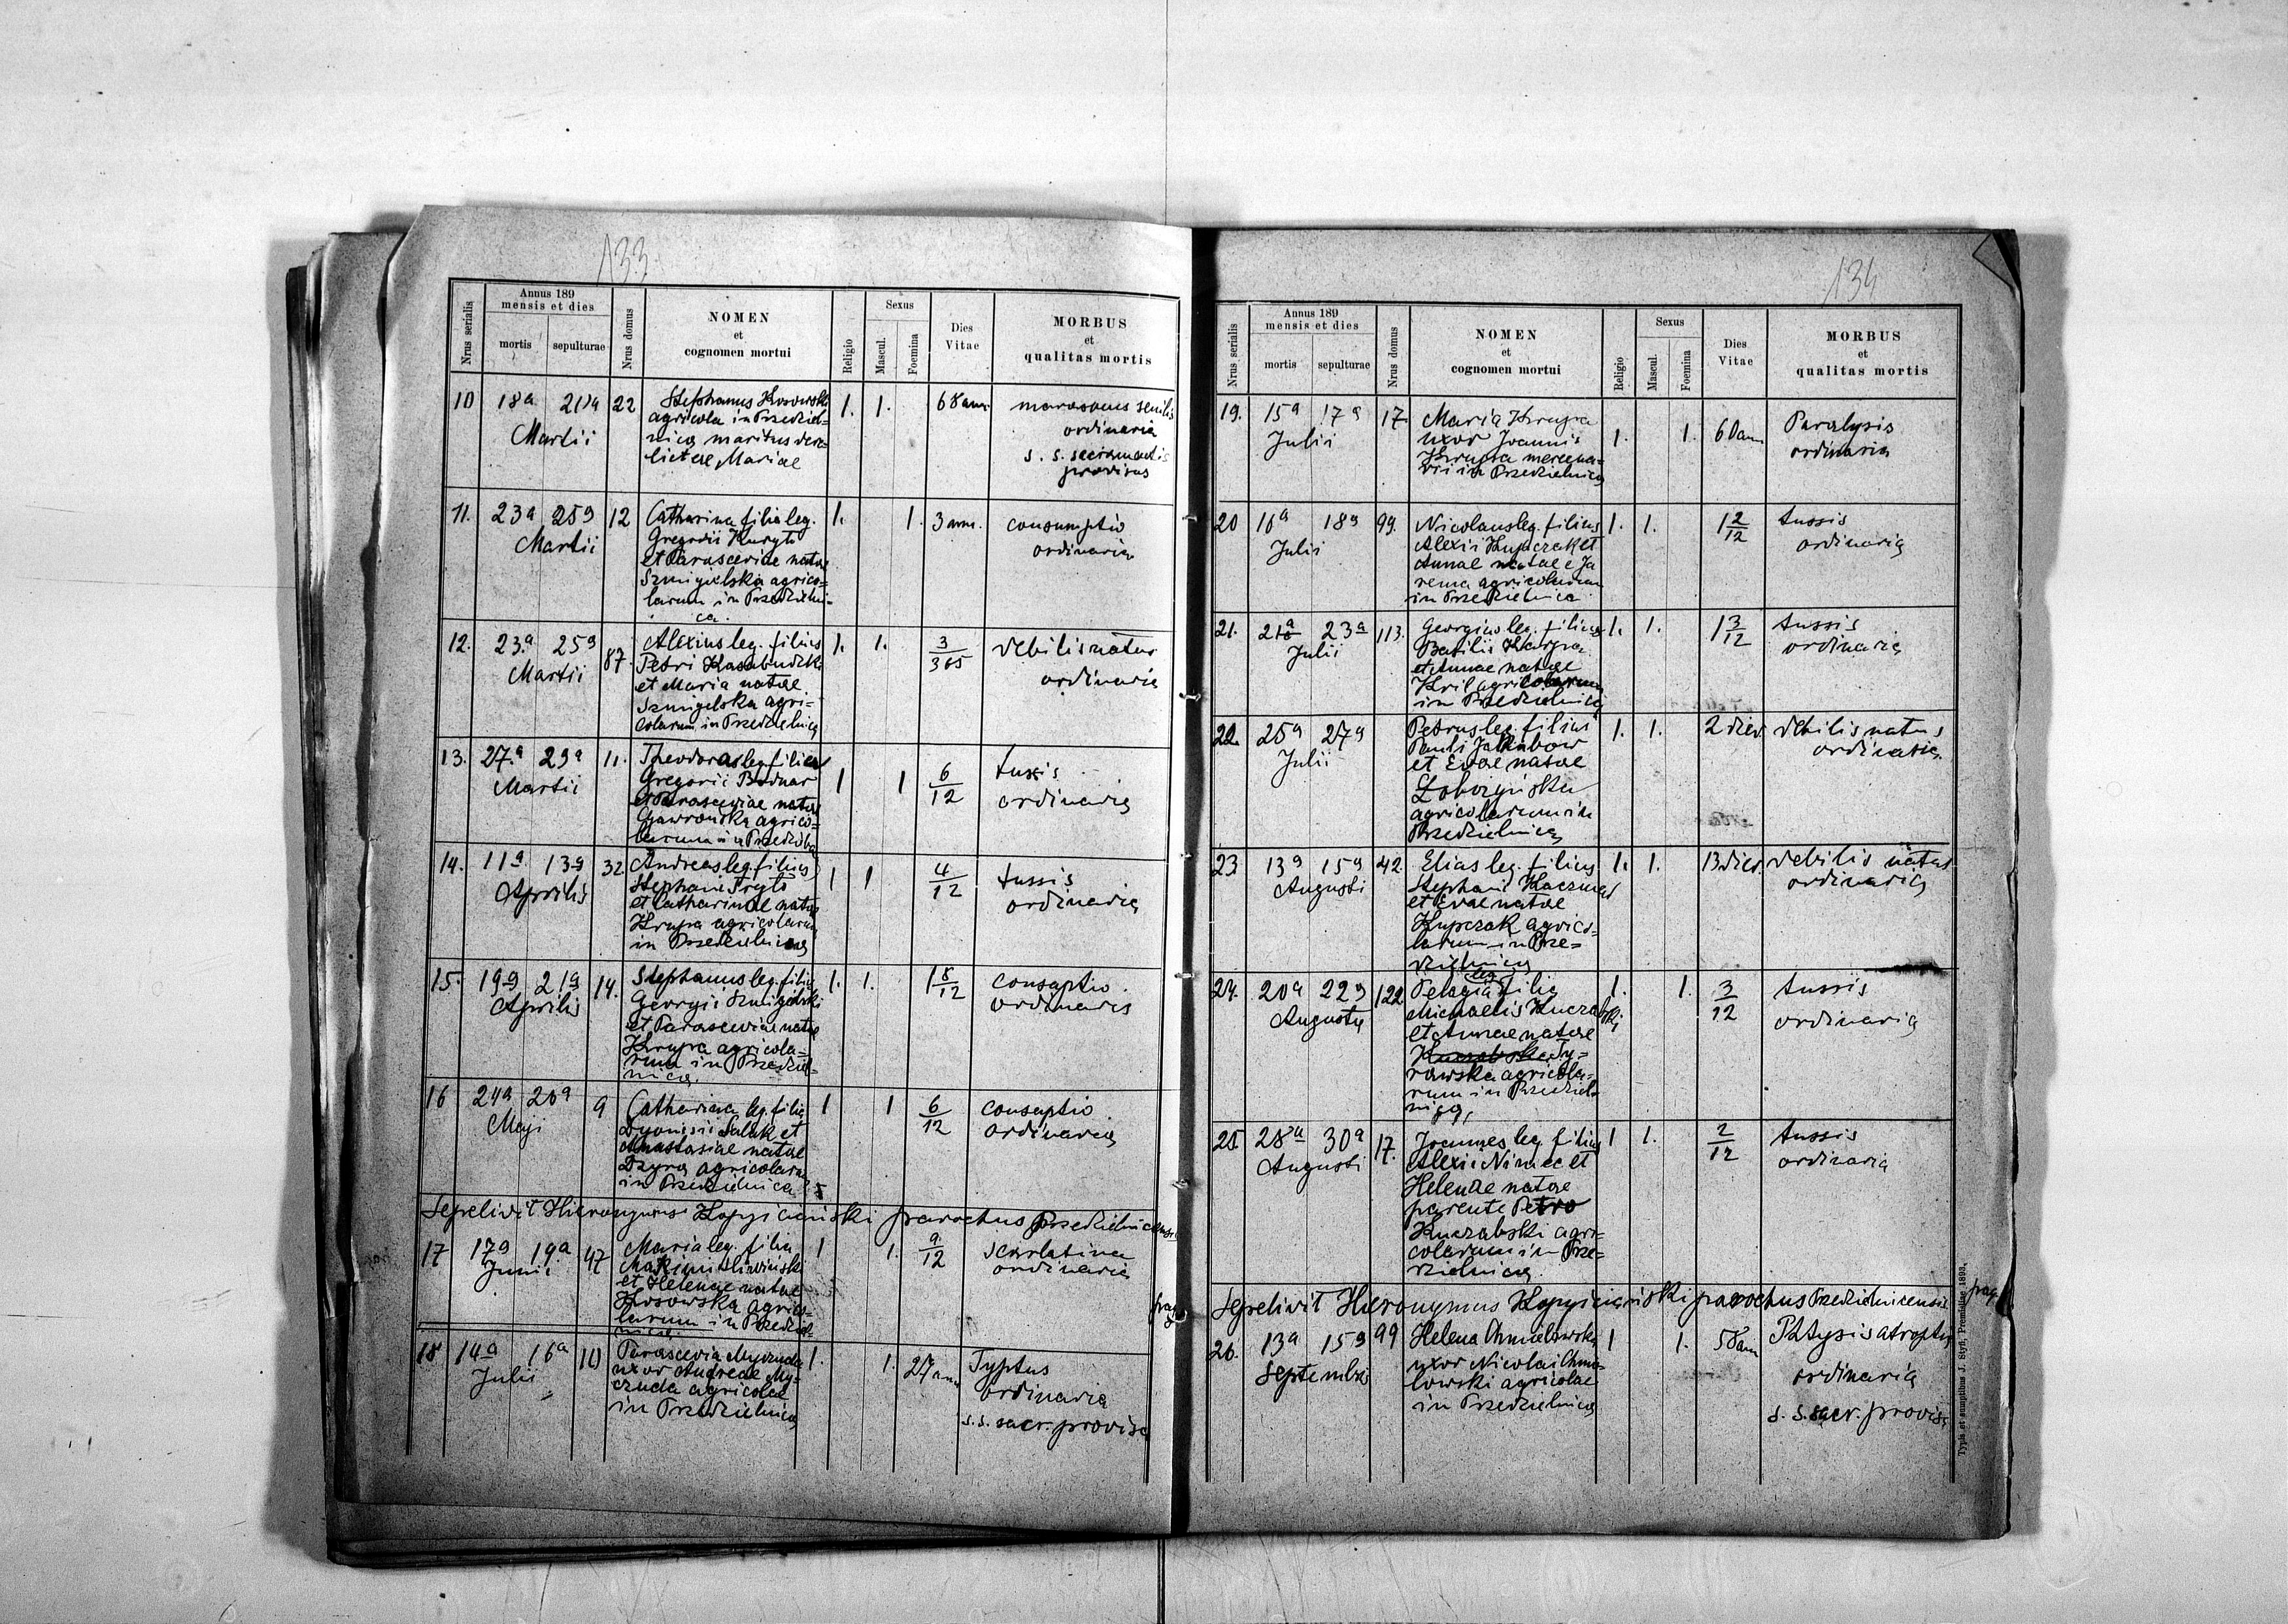 133
Nrus serialis
Annus 189
mensis et dies
mortis
sepulturae
Nrus domus
NOMEN
et
cognomen mortui
Religio
Sexus
Mascul.
Foemina
Dies
Vitae
MORBUS
et
qualitas mortis
10 18a 20a 22 Stephanus Kosowski 1. 1. 68 ann. marasmus senilis
Martii agricola in Przedziel= ordinaria
nica maritus dere= s. s. sacramentis
lictae Mariae provisus
11. 23a 25a 12 Catharina filia leg. 1. 1. 3 ann. consumptio
Martii Gregorii Kuryło ordinaria
et Parasceviae natae
Szmigielska agrico=
larum in Przedzielni=
ca.
12. 23.a 25a 87. Alexius leg. filius 1. 1. 3/365 debilis natus
Martii Petri Kasabudzki ordinaria
et Maria natae
Szmigelska agri=
colarum in Przedzielnica
13. 27.a 29a 11. Theodora leg. filia 1 1 6/12 tussis
Martii Gregorii Bodnar ordinaria
et Parasceviae natae
Gawrońska agrico=
larum in Przedzielnica
14. 11a 13a 32 Andreas leg. filius 1 1 4/12 tussis
Aprilis Stephani Pryło ordinaria
et Catharinae natae
Krupa agricolarum
in Przedzielnica
15. 19a 21a 14. Stephanus leg. filius 1. 1. 1 8/12 consuptio
Aprilis Georgii Szmigelski ordinaris
et Parasceviae natae
Krupa agricola=
rum in Przedziel=
nica.
16 24a 26a 9 Catharina leg. filia 1 1 6/12 consuptio
Maji Dyonisii Salak et ordinaria
Anastasiae natae
Dzyra agricolarum
in Przedzielnica
Sepelivit Hieronymus Kopyściański parochus Przedzielnicensis
17 17a 19a 47 Maria leg. filia 1 1. 9/12 scarlatina
Junii Maximi Sliwiński ordinaria
et Helenae natae
Kosowska agrico=
larum in Przedziel=
nica.
18 14a 16a 10 Parascevia Myczuda 1. 1. 27 ann Typtus
Julii uxor Andreae My= ordinaria
czuda agricolae s.s. sacr. provisa
in Przedzielnica
134
Nrus serialis
Annus 189
mensis et dies
mortis
sepulturae
Nrus domus
NOMEN
et
cognomen mortui
Religio
Sexus
Mascul.
Foemina
Dies
Vitae
MORBUS
et
qualitas mortis
19. 15a 17a 17. Maria Krupa 1. 1. 60 ann Paralysis
Julii uxor Joannis ordinaria
Krupa mercena=
rii in Przedzielnica
20 16a 18a 99. Nicolaus leg. filius 1. 1. 1 2/12 tussis
Julii Alexii Kupczak et ordinaria
Annae natae e Ja
rema agricolarum
in Przedzielnica
21. 21a 23a 113. Georgius leg. filius 1. 1. 1 3/12 tussis
Julii Basilii Karpa ordinaria
et Annae natae
Kril agricolarum
in Przedzielnica
22. 25a 27a Petrus leg. filius 1. 1. 2 dies debilis natus
Julii Pauli Jakubow ordinaria
et Evae natae
Łobozińska
agricolarum in
Przedzielnica
23. 13a 15a 42. Elias leg. filius 1. 1. 13 dies. debilis natus
Augusti Stephani Kaczmar ordinaria
et Evae natae
Kupczak agrico=
larum in Prze=
dzielnica
24. 20a 22a 122 Pelagia leg. filia 1. 1. 3/12 tussis
Augusti Michaelis Kuczabski ordinaria
et Annae natae
Kuczabska Ty=
rawska agricola=
rum in Przedziel=
nica,
25 28a 30a 17. Joannes leg. filius 1 1. 2/12 tussis
Augusti Alexii Nimec et ordinaria
Helenae natae
parente Petro
Kuczabski agri=
colarum in Prze=
dzielnica
Sepelivit Hieronymus Kopyściański parochus Przedzielnicensis
26. 13a 15a 99 Helena Chmielowska 1 1. 58 ann Phtysis atrophia
Septembris uxor Nicolai Chmie= ordinaria
lowski agricolae s. s. sacr. provisa
in Przedzielnica
Typis et sumptibus J. Styfi, Premisliae 1893.